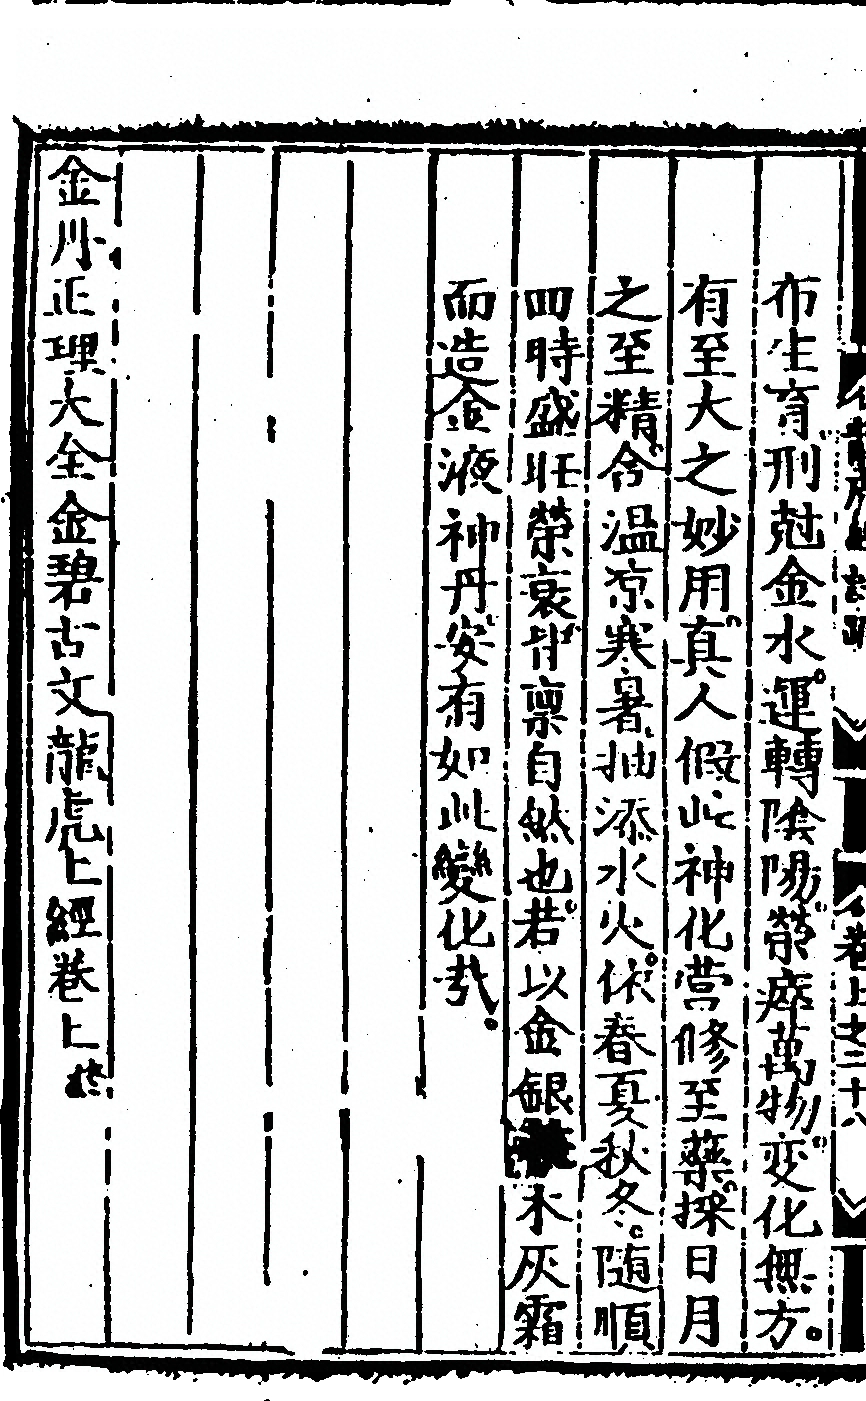 布生育刑尅金水運轉陰陽榮瘁萬物变化無方。
有至大之妙用真人假此神化营修至藥採日月
之至精含温凉寒暑抽添水火依春夏秋冬随順
四時盛旺榮衰皆禀自然也若以金銀木灰霜
而造金液神丹安有如此變化哉。
金丹正理大全金碧古文龍虎上經卷上終
卷上之二十八